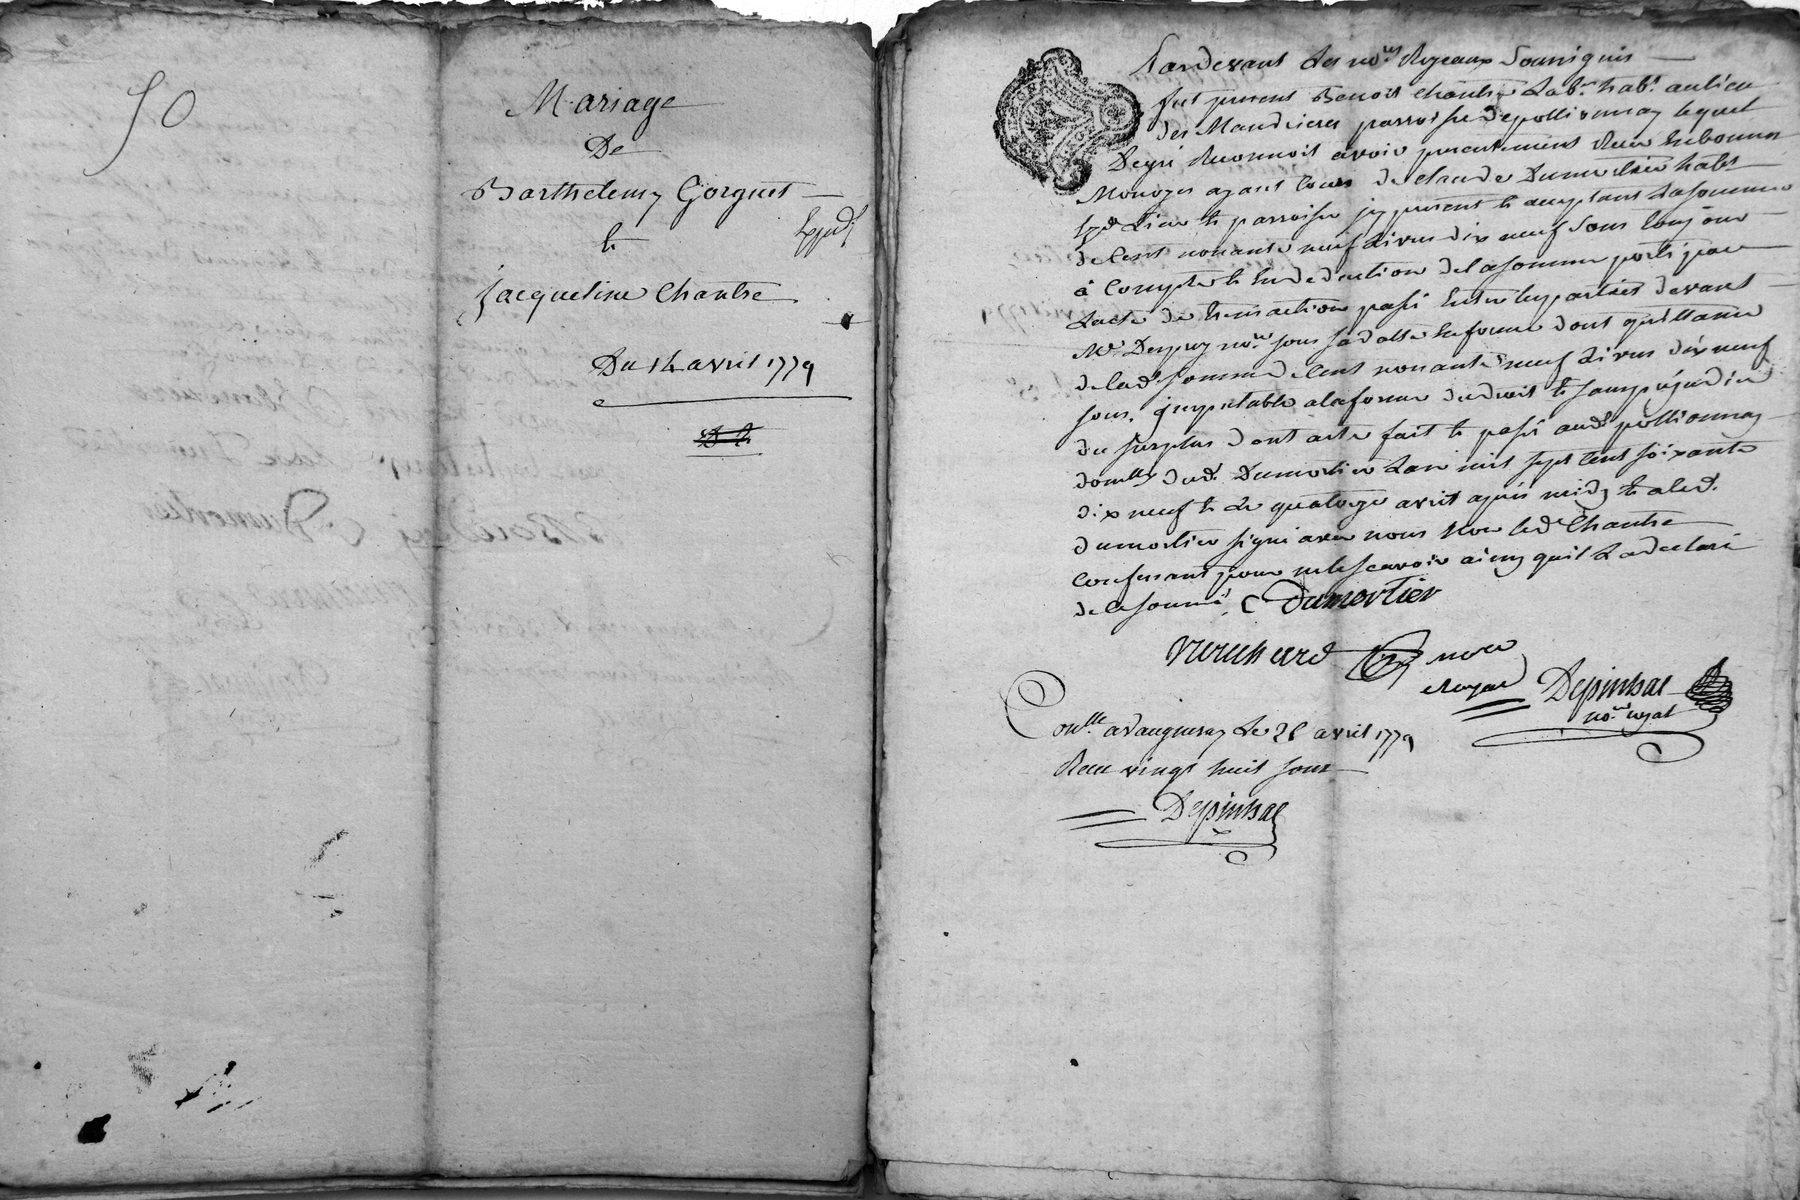 50
Mariage
De
Barthelemy Gorguet
Et
Expedié
Jacqueline Chantre
Du 14 avril 1779
Pardevant Les no.res Royeaux Soussignés
fut present Benoit Chantre Lab.r hab.t au lieu
des Mandrieres parroisse de pollionnay lequel
De gré Reconnoit avoir presentement Reçu En bonnes
Monoyes ayant Cours de Claude Dumortier hab.t
Lieu et parroisse y present et acceptant La somme
de Cent nonante neuf Livres dix neuf Sous Et ce
à Compte et En deduction de la somme portée par
L'acte de transaction passé Entre les parties devant
M.e no.re sous sa datte En forme dont quittance
de lad. somme de Cent nonante neuf Livres dix neuf
sous, a la forme du droit et sans préjudice
du surplus dont acte fait et passé aud. pollionnay
dom.lle dud. Dumortier L'an mil sept Cent soixante
dix neuf et Le quatorze avril après midy Et a led.
Dumortier signé avec nous Non led. Chantre
pour ne le scavoir ainsy qu'il L'a declaré
de ce sommé, C Dumortier
no.re
Royal
Despinhac
no.re royal
Con.lle a Vaugneray Le 28 avril 1779
Reçu vingt huit sous
Despinhac